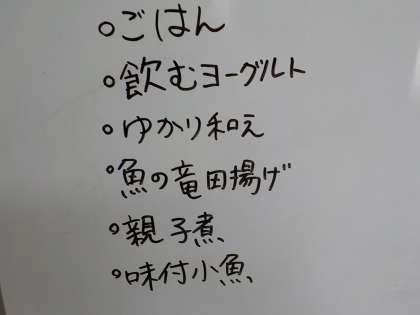 ○ごはん
○飲むヨーグルト
○ゆかり和え
○魚の竜田揚げ
○親子煮
○味付小魚